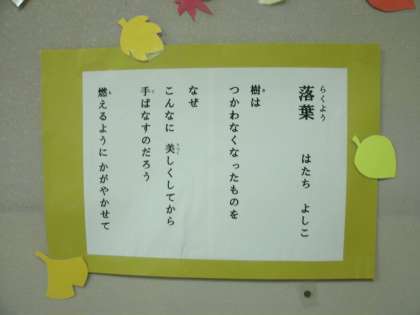 落葉 はたち よしこ
樹は
つかわなくなったものを
なぜ
こんなに 美しくしてから
手ばなすのだろう
燃えるように かがやかせて